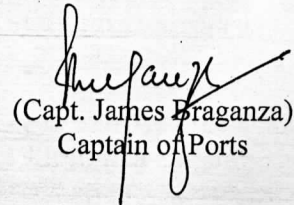 (Capt. James Braganza)
Captain of Ports